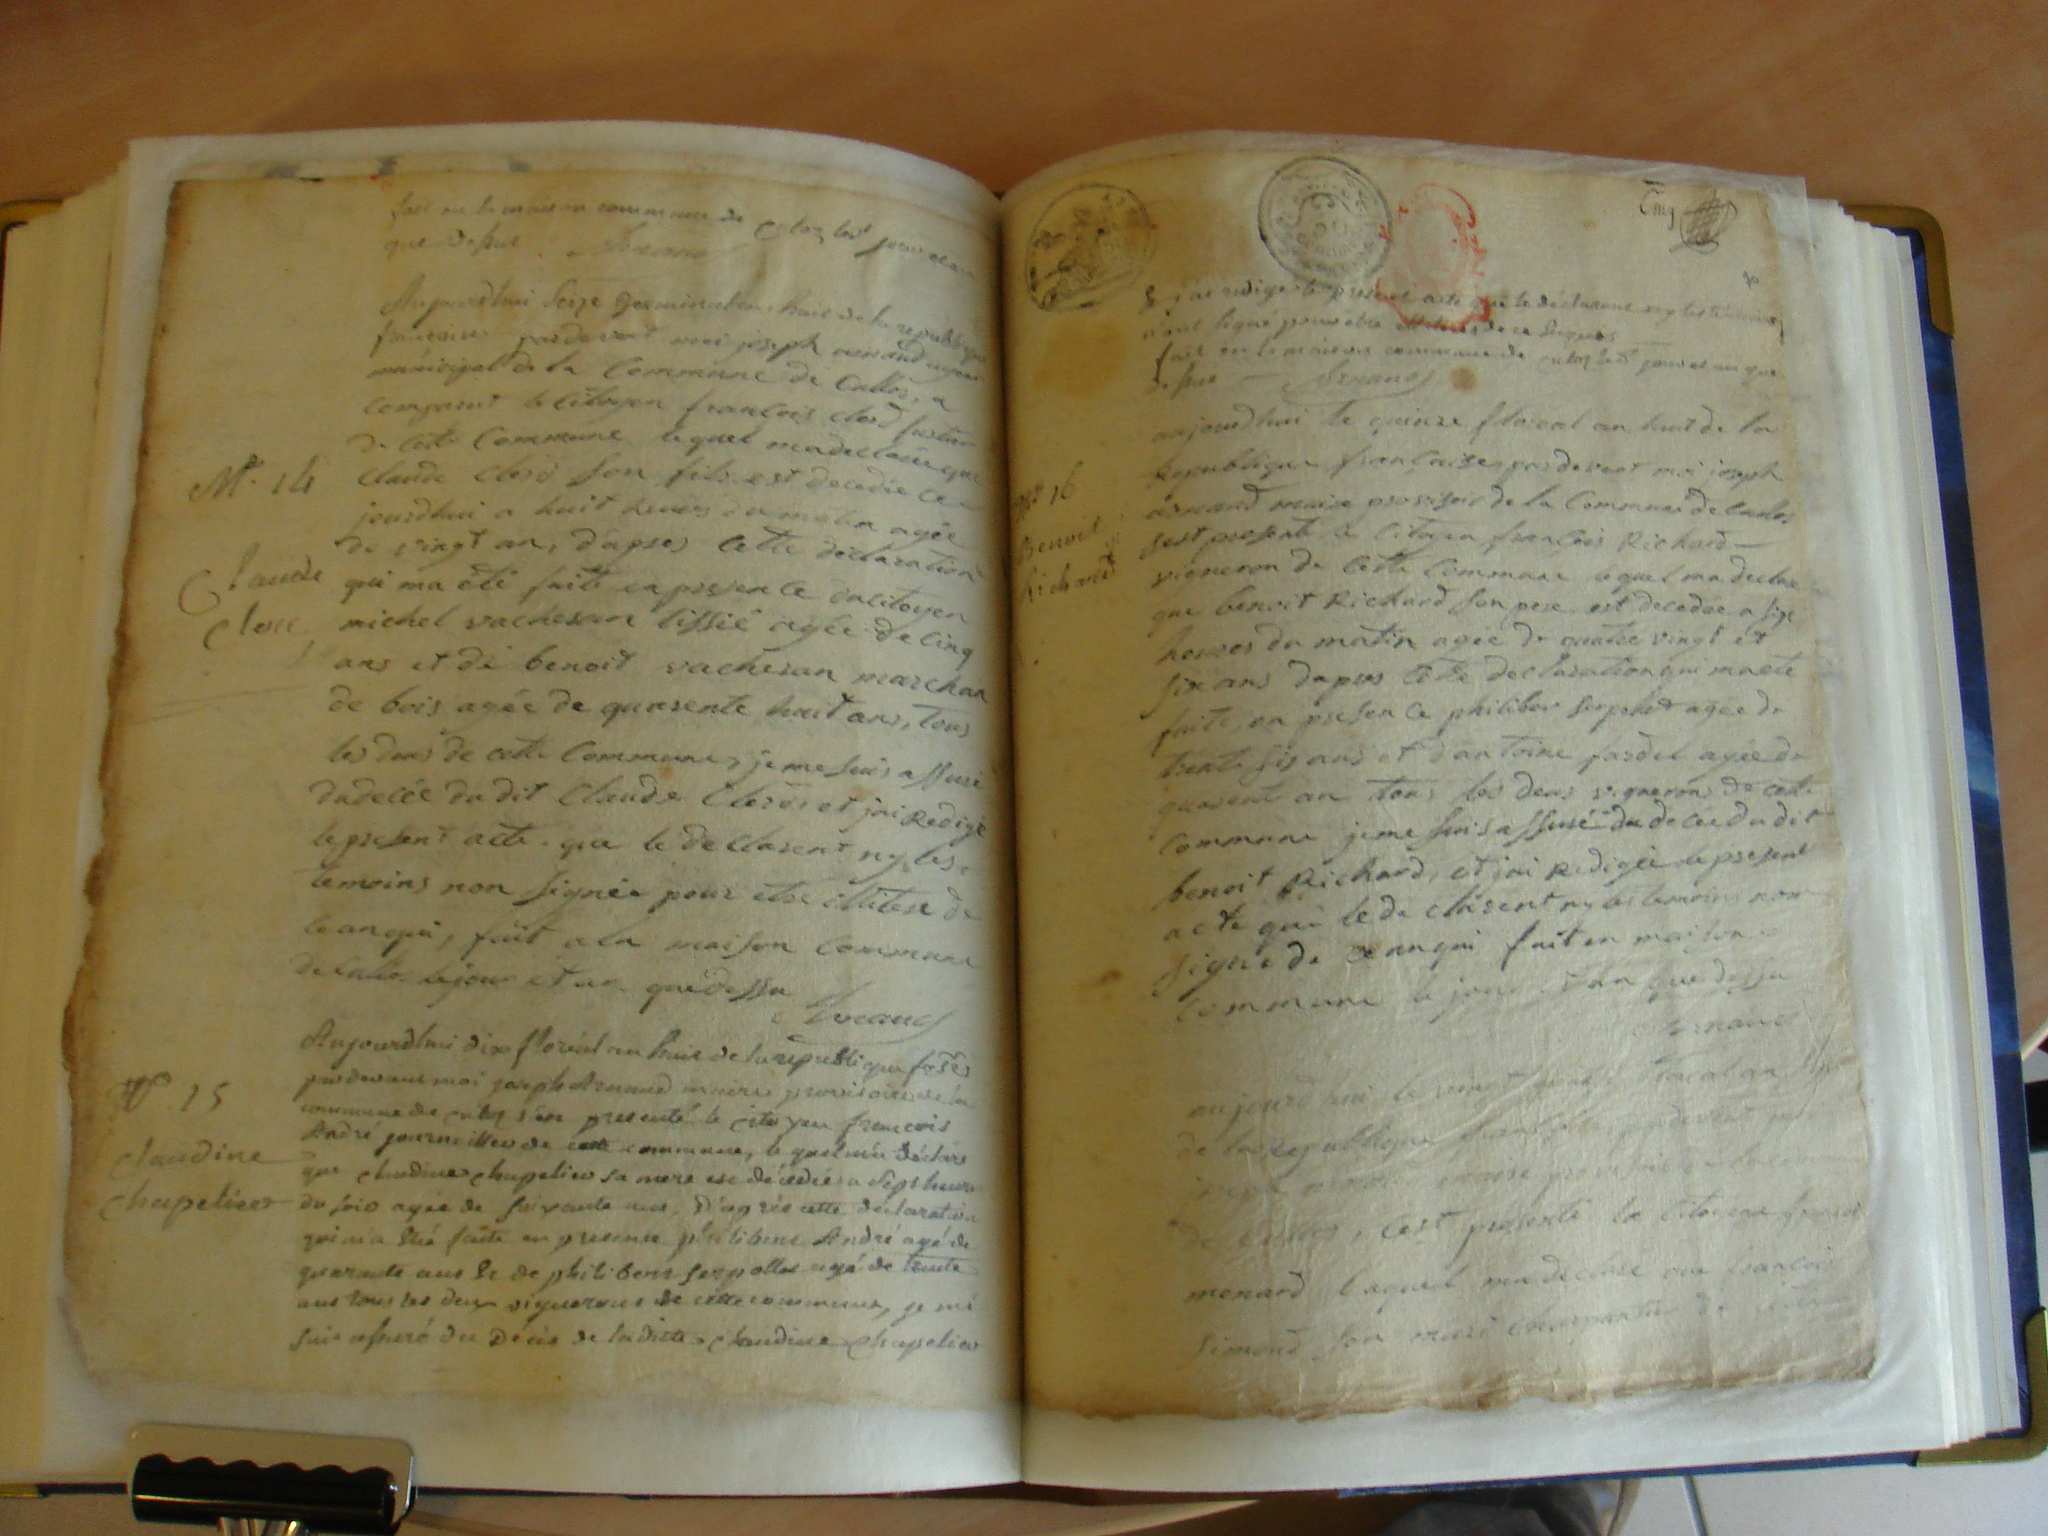 fait en la maison commune de Culoz lesd jour et an
que dessus Arnaud
Aujourdhui Seize germinal an huit de la république
francoise pardevant moi joseph arnaud agent
municipal de la Commune de Culloz, a
comparut le Citoyen francois clerd
de Cette Commune lequel ma declarée que
Claude Clerd Son fils est decedée ce
jourdhui a huit heures du matin agée
de vingt an, daprés Cette declaration
qui ma été faite en presence du citoyen
michel vacheran tissié agée de Cinq
ans et de benoit vacheran marchan
de bois agée de quarente huit ans, tous
les deus de cette Commune, je me suis assuré
du decée du dit Claude Clerd et jai Redigé
le present acte que le declarent ny les
temoins non Signée pour etre illitere de
ce anquï, fait a la maison Commune
de Culloz le jour et an que dessu
Arnaud
N° 14
Claude
Clerc
Aujourdhui dix floréal an huit de la republique frses
pardevant moi joseph Arnaud maire provisoire de la
commune de Culoz s'est presenté le citoyen francois
André journaillier de cette commune, lequel m'a déclaré
que claudine chapelier sa mere est décédée a Sept heures
du soir agée de soixante ans, D'après cette déclaration
qui m'a été faite en presence philibert André agé de
quarante ans & de philibert serpollet agé de trente
ans tous les deux vignerons de cette commune, je me
suis assuré du Décès de ladite claudine chapelier
N° 15
claudine
chapelier
Cinq
& j'ai redigé le présent acte que le déclarant ny les témoins
n'ont signé pour être illiterés de ce Enquis
fait en la maison commune de Culoz lesd jour et an que
dessus Arnaud
aujourdhui le quinze floreal an huit de la
Republique française pardevent moi joseph
arnaud maire provisoir de la Commune de Culoz
sest presenté le Citoyen francois Richard
vigneron de Cette Commune lequel ma declaré
que benoit Richard Son pere est decedée a six
heures du matin agée de quatre vingt et
six ans daprés Cette declaration qui ma été
faite en presence philiber serpolet agée de
trente six ans et dantoine fardel agée de
quarent an tous les deus vignerons de cette
Commune je me suis assuré du decée du dit
benoit Richard, et jai Redigée le present
acte que le declarent ny les temoins non
signé de ce anqui fait en maison
Commune le jour et an que dessu
Arnaud
N° 16
Benoit
Richard
aujourdhui le vingt floreal an
de la republique française pardevent moi
joseph arnaud maire provisoir de la commune
de Culloz, Cest presenté la Citoyene
menard laquel ma declaré que françois
Simond Son mari Charpantier de